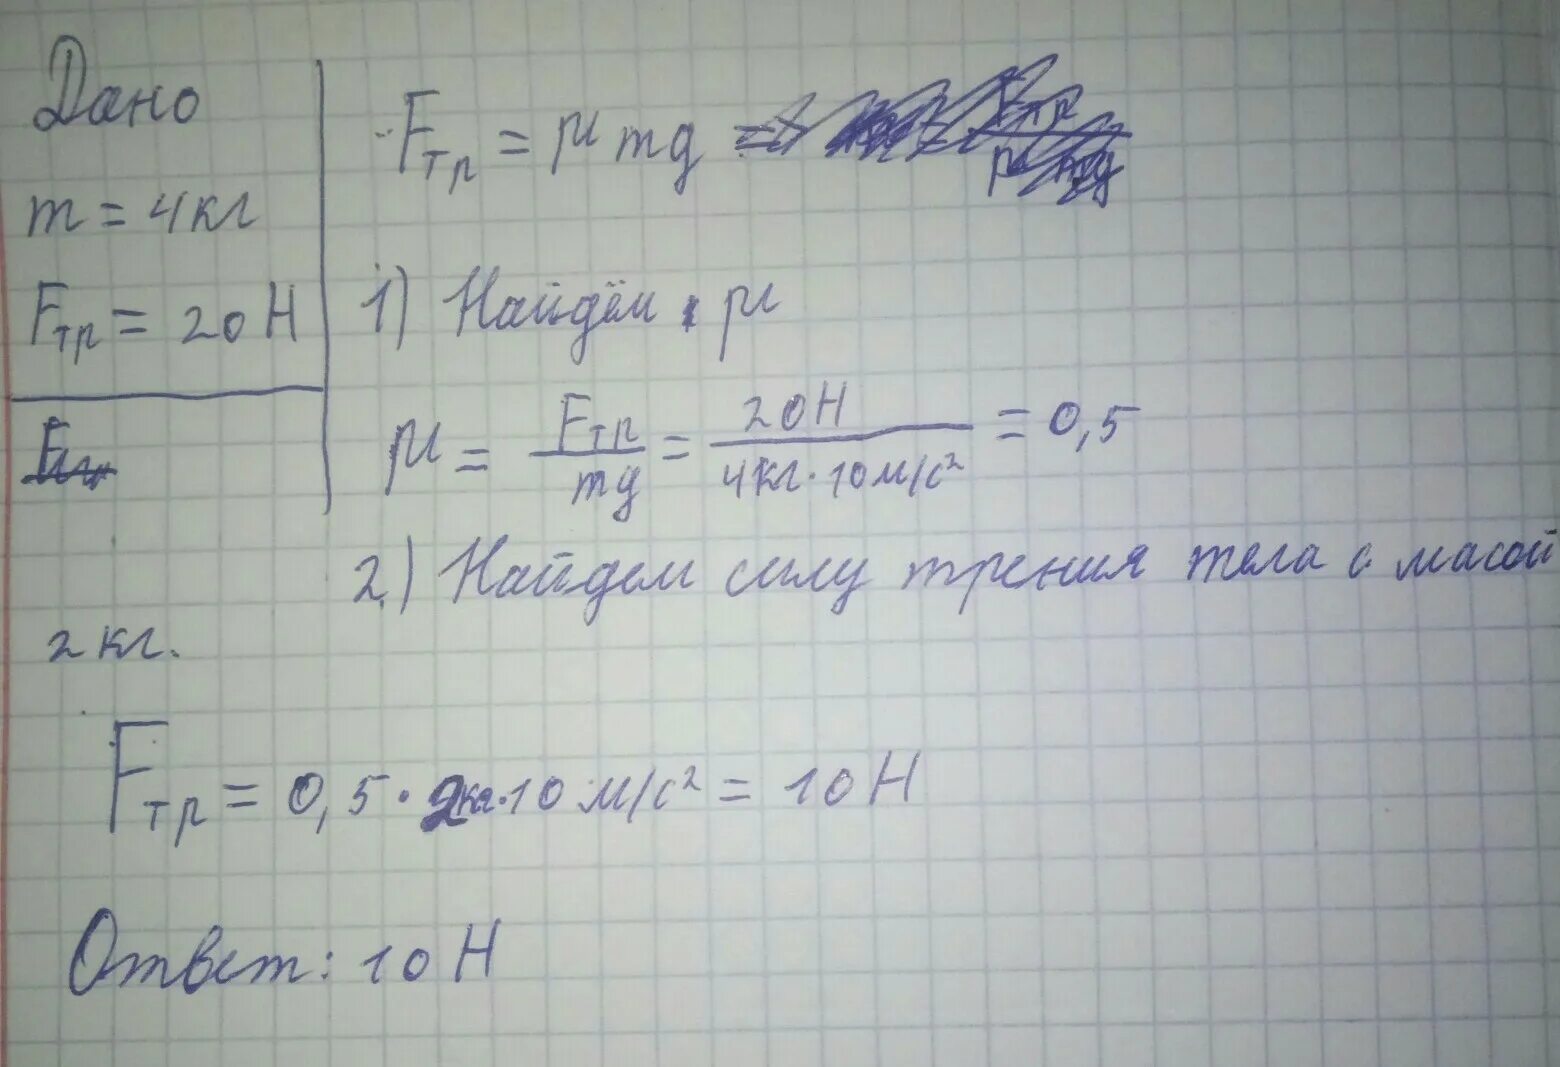 Дано
m = 4кг
Fтр = 20 Н
Fтр = μ mg =
1) Найдём μ
μ = Fтр/mg = 20Н/4кг·10м/с² = 0,5
2) Найдем силу трения тела с масой
2 кг.
Fтр = 0,5 · 2кг·10 м/с² = 10 Н
Ответ: 10 Н